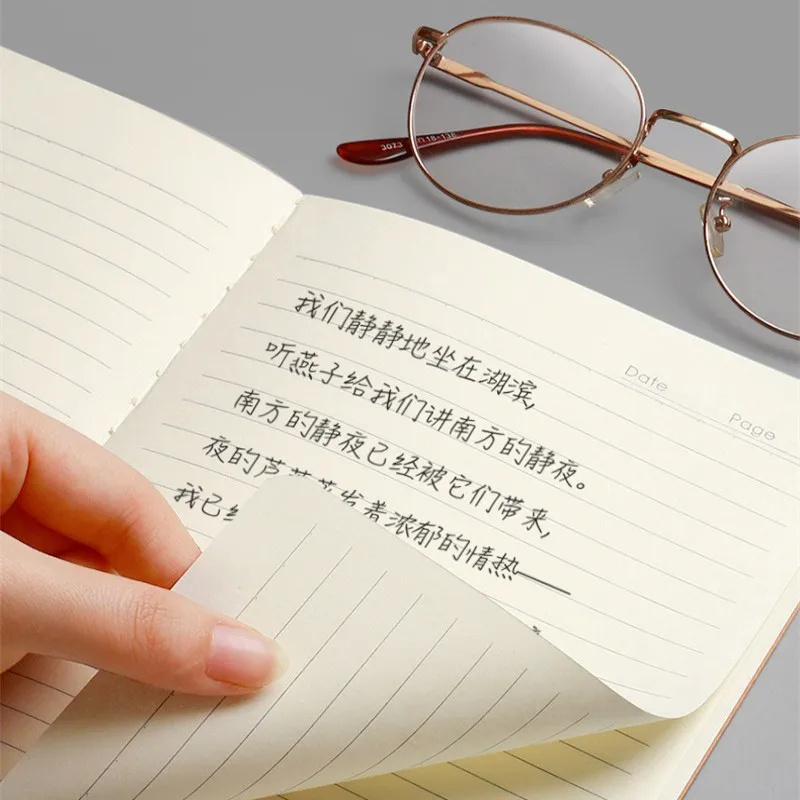 3023 18-138
Date
Page
我们静静地坐在湖滨,
听燕子给我们讲南方的静夜。
南方的静夜已经被它们带来,
夜的芦苇蒸发着浓郁的情热——
我已